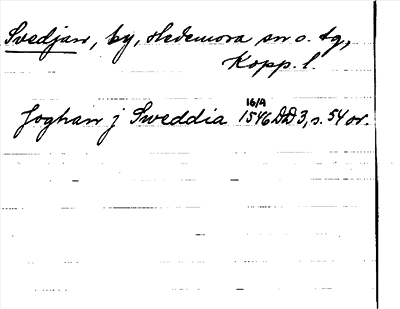 Svedjan, by, Hedemora sn o. tg,
Kopp. l.
Joghan j Sweddia 16/4 1546 DD 3, s. 54 or.